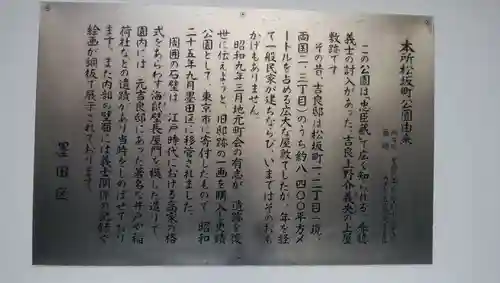 本所松坂町公園由来
この公園は「忠臣蔵」で広く知られる 赤穂
義士の討入があった、吉良上野介義央の上屋
敷跡です
その昔、吉良邸は松坂町一、二丁目（現、
両国二、三丁目）のうち約八、四〇〇平方メ
ートルを占める広大な屋敷でしたが、年を経
て一般民家が建ちならび、いまではそのおも
かげもありません。
昭和九年三月地元町会の有志が 遺跡を後
世に伝えようと、旧邸跡の一画を購入し史蹟
公園として、東京市に寄付したもので、昭和
二十五年九月墨田区に移管されました。
周囲の石壁は 江戸時代における高家の格
式をあらわす海鼠壁長屋門を模した造りで
園内には 元吉良邸にあった著名な井戸や稲
荷社などの遺蹟があり当時をしのばせており
ます、また内部の壁面には義士関係の記録や
絵画が銅板で展示されております。
墨田区